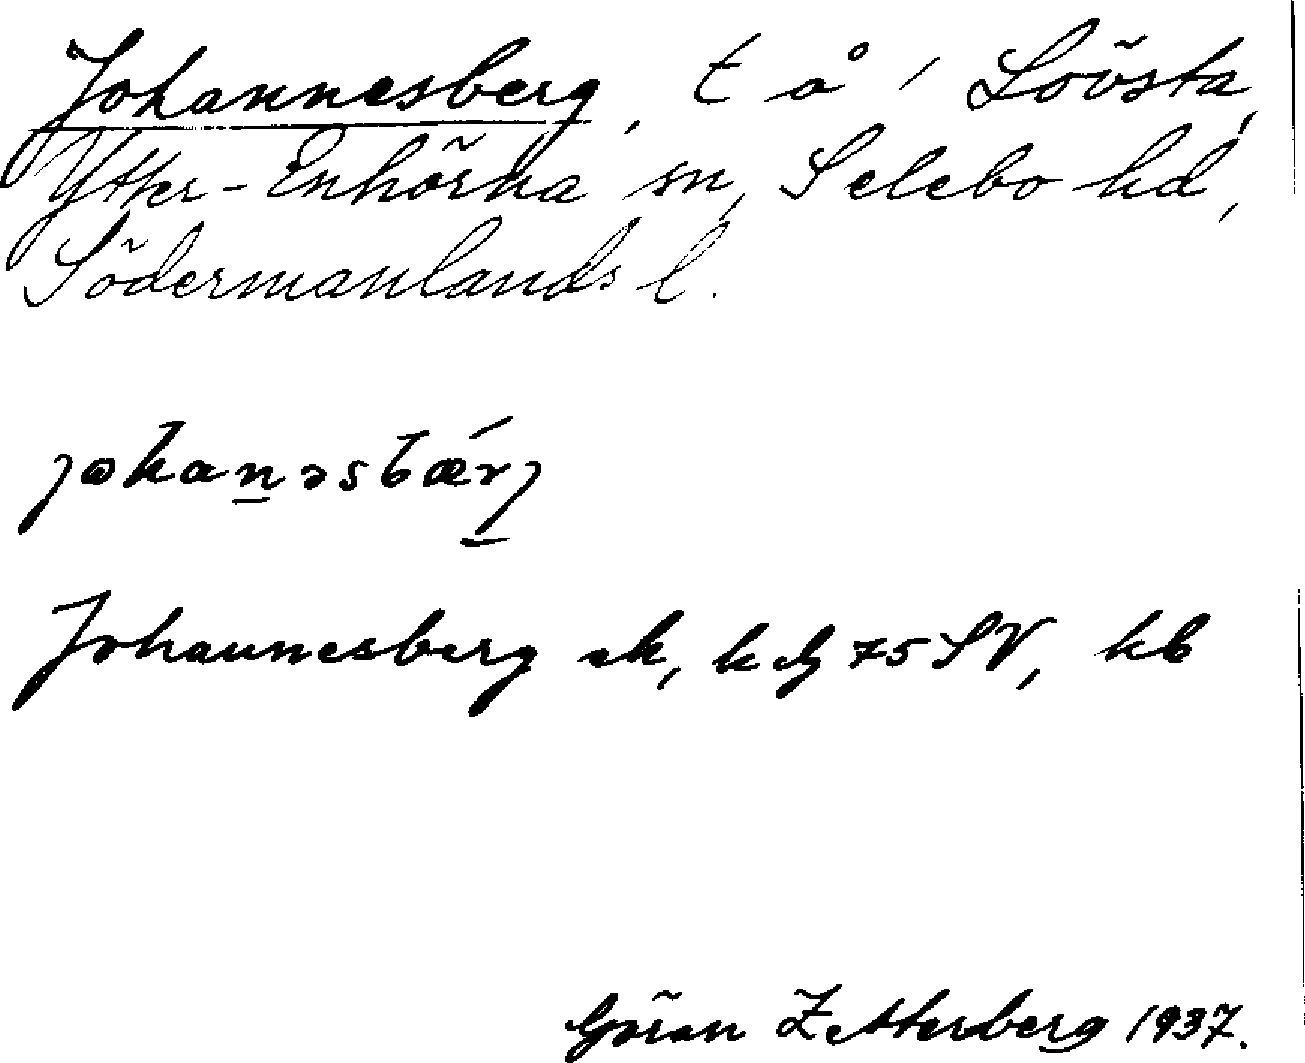 Johannesberg, t å / Lövsta,
Ytter-Enhörna sn, Selebo hd,
Södermanlands l.
johanəsbǽrj
Johannesberg ek, 75 SV, kb
Göran Zetterberg 1937.